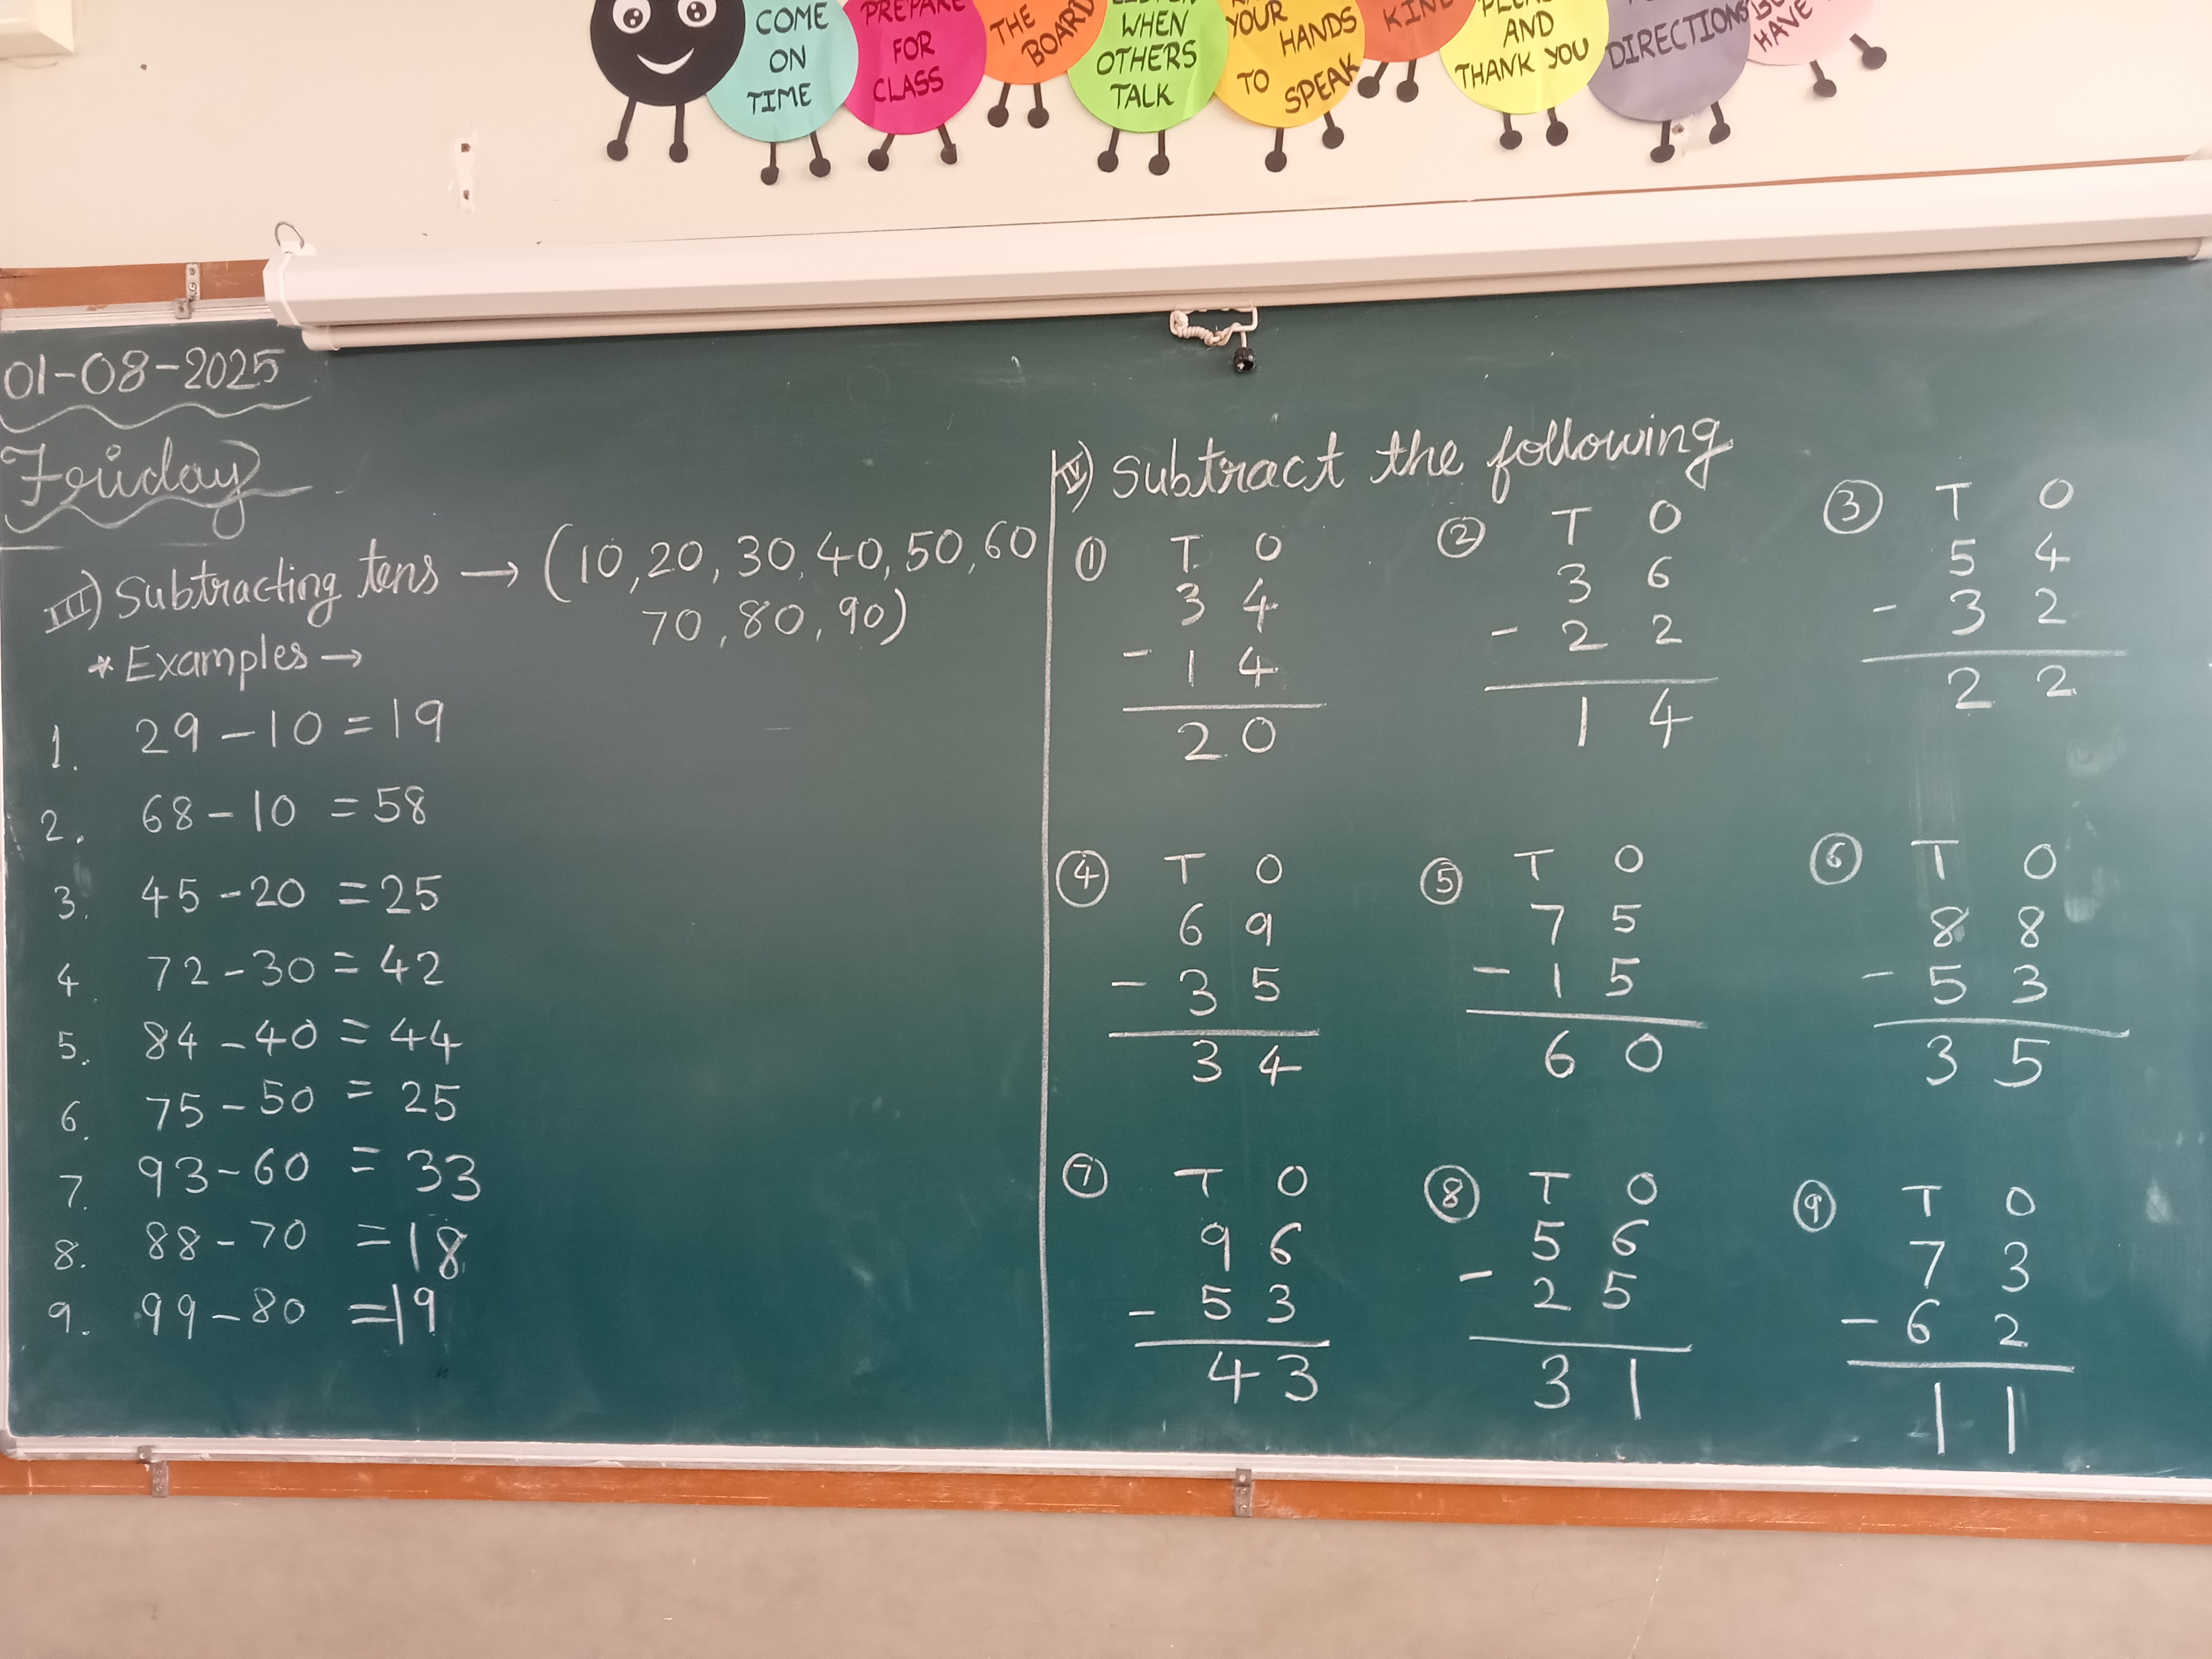 COME
ON
TIME
PREPARE
FOR
CLASS
THE
BOARD
WHEN
OTHERS
TALK
YOUR
HANDS
TO
SPEAK
KIND
AND
THANK YOU
DIRECTIONS
HAVE
01-08-2025
Friday
III) Subtracting tens → (10, 20, 30, 40, 50, 60
70, 80, 90)
* Examples →
1. 29 - 10 = 19
2. 68 - 10 = 58
3. 45 - 20 = 25
4. 72 - 30 = 42
5. 84 - 40 = 44
6. 75 - 50 = 25
7. 93 - 60 = 33
8. 88 - 70 = 18
9. 99 - 80 = 19
IV) Subtract the following
① T O
3 4
- 1 4
2 0
② T O
3 6
- 2 2
1 4
③ T O
5 4
- 3 2
2 2
④ T O
6 9
- 3 5
3 4
⑤ T O
7 5
- 1 5
6 0
⑥ T O
8 8
- 5 3
3 5
⑦ T O
9 6
- 5 3
4 3
⑧ T O
5 6
- 2 5
3 1
⑨ T O
7 3
- 6 2
1 1